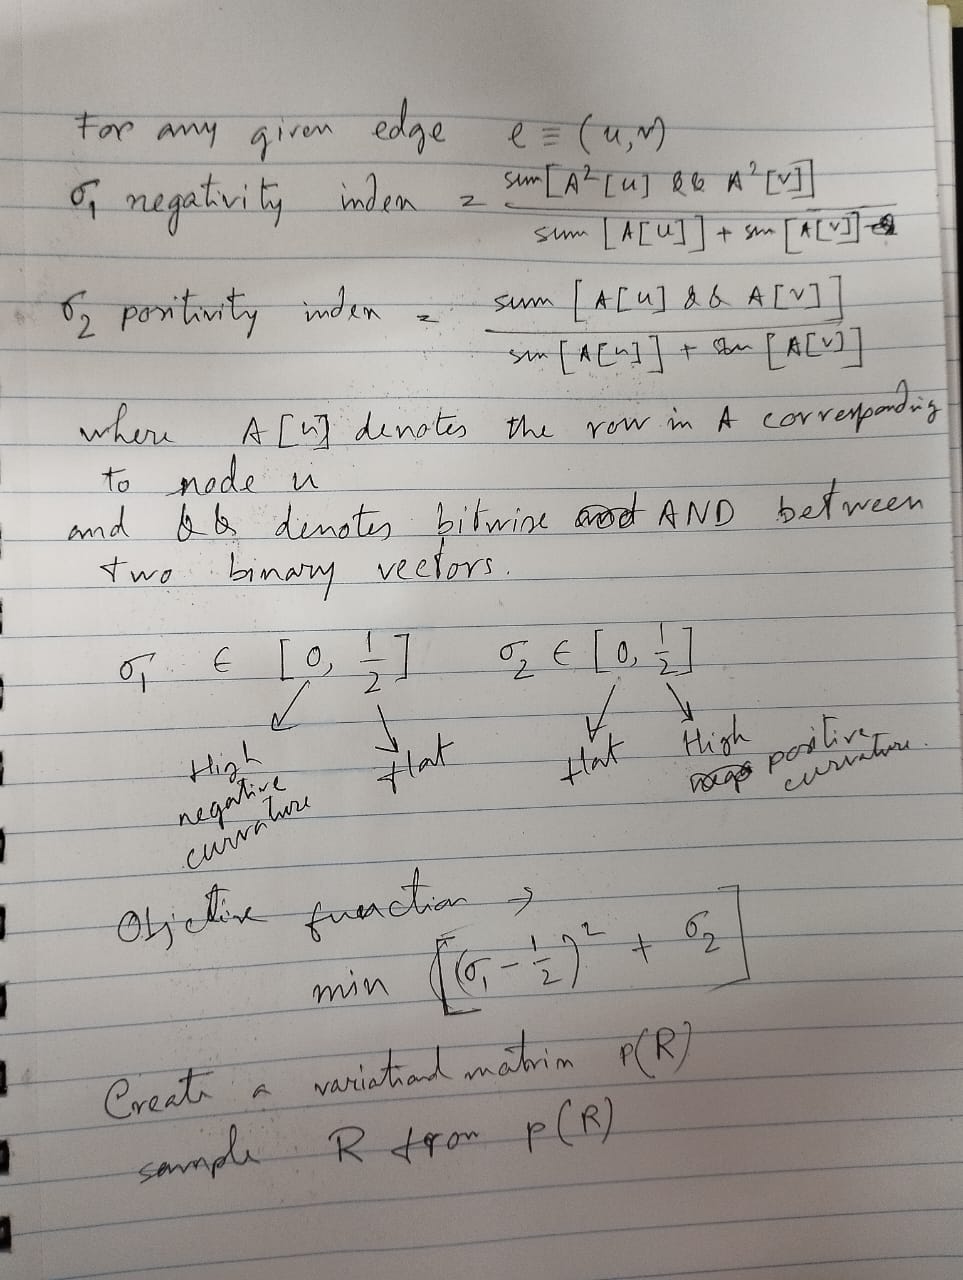 For any given edge e ≡ (u,v)
σ₁ negativity index = sum[A²[u] && A²[v]] / sum[A[u]] + sum[A[v]]
σ₂ positivity index = sum[A[u] && A[v]] / sum[A[u]] + sum[A[v]]
where A[u] denotes the row in A corresponding
to node u
and && denotes bitwise AND between
two binary vectors.
σ₁ ∈ [0, 1/2] σ₂ ∈ [0, 1/2]
High negative curvature flat flat High positive curvature.
Objective function →
min [(σ₁ - 1/2)² + σ₂]
Create a variational matrix p(R)
sample R from p(R)